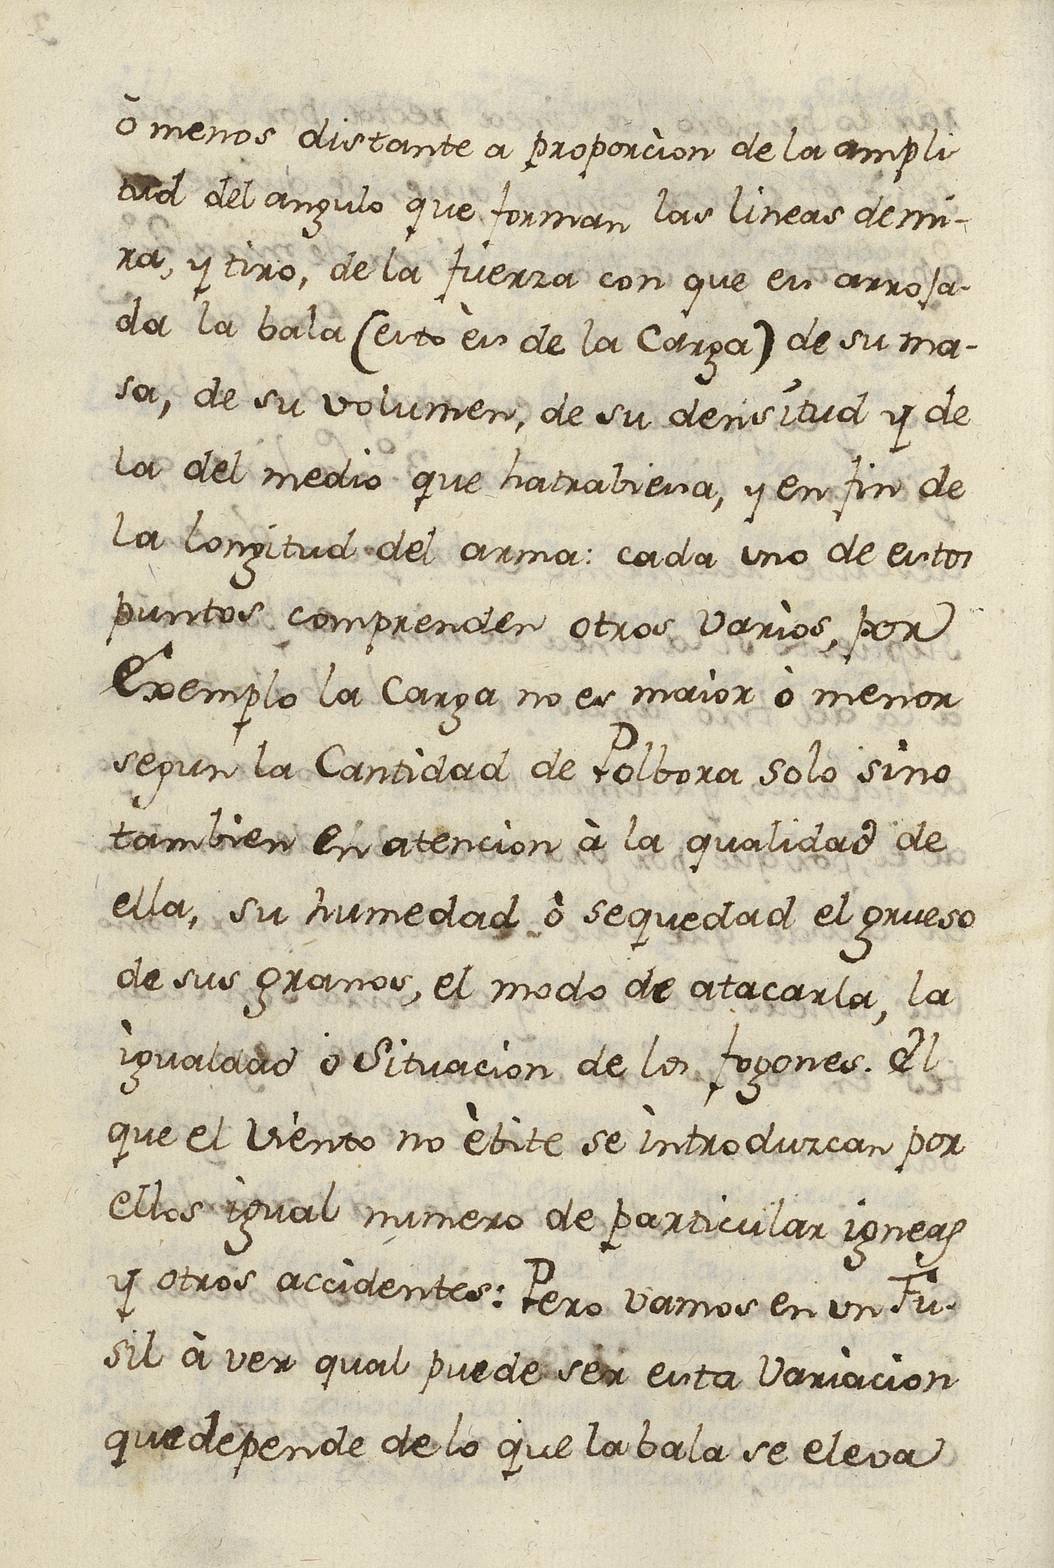 ò menos distante a proporcion de la ampli
tud del angulo que forman las lineas de mi-
ra, y tiro, de la fuerza con que es arroja-
da la bala (esto ès de la Carga) de su ma-
sa, de su volumen, de su densitud y de
la del medio que hatrabiesa, y en fin de
la longitud del arma: cada uno de estos
puntos comprenden otros varios, por
Exemplo la Carga no es maior ò menor
segun la Cantidad de Polbora solo sino
tambien en atencion à la qualidad de
ella, su humedad ò sequedad el grueso
de sus granos, el modo de atacarla, la
igualdad o Situacion de los fogones. El
que el viento no èbite se introduzcan por
ellos igual numero de particular igneas
y otros accidentes: Pero vamos en un Fu-
sil à ver qual puede ser esta Variacion
que depende de lo que la bala se eleva